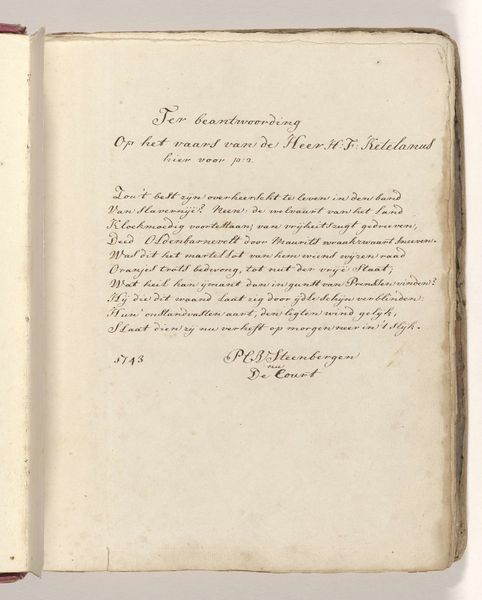 Ter beantwoording
Op het vaars van de Heer H: F: Ketelanus
hier voor p: 2.
Zou't best zijn overheerscht te leven in den band
Van Slavernije? Neen: de welvaart van het Land
Kloekmoedig voortestaan, van vrijheitszugt gedreven,
Deed Oldenbarnevelt door Maurits wraakzwaart sneven.
Was dit het martellot van hem wiens wyzen raad
Oranjes trots bedwong, tot nut der vrije Staat;
Wat heil kan ijmant dan in gunst van Prinssen vinden?
Hij die dit waand laat zig door ijdle schijn verblinden:
Hun onstandvasten aart, den ligten wind gelyk,
Slaat dien zij nu verheft op morgen neer in 't slijk.
1743
Steenbergen
De Court